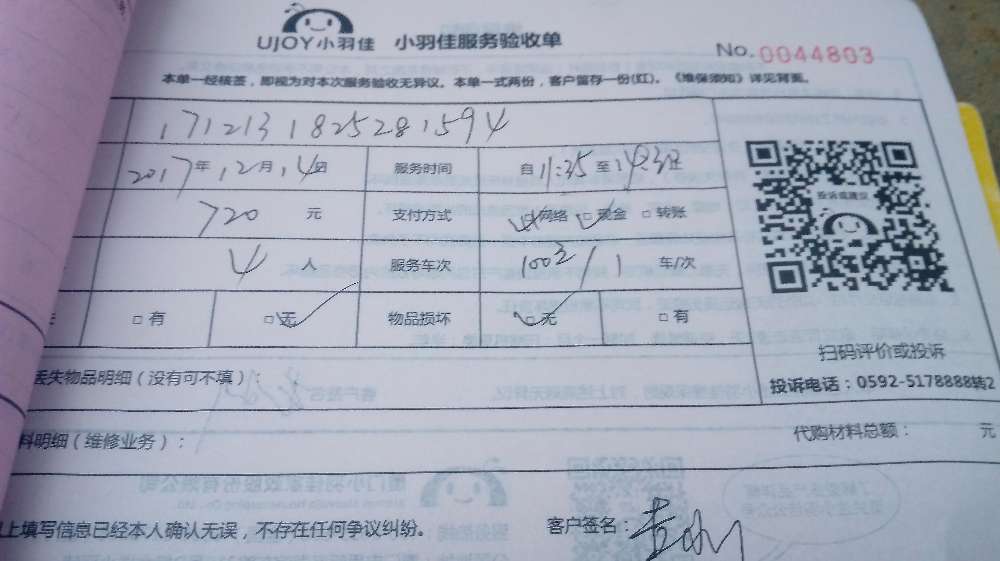 UJOY小羽佳 小羽佳服务验收单
No. 0044803
本单一经核签，即视为对本次服务验收无异议。本单一式两份，客户留存一份(红)。《维保须知》详见背面。
1712131825281594
2017年12月14日 服务时间 自11:35至
720元 支付方式 网络 □现金 □转账
投诉或建议
4人 服务车次 1002/1 车/次
□有 □无 物品损坏 □无 □有
扫码评价或投诉
丢失物品明细（没有可不填）：
投诉电话：0592-5178888转2
料明细（维修业务）：
代购材料总额： 元
上填写信息已经本人确认无误，不存在任何争议纠纷。 客户签名：